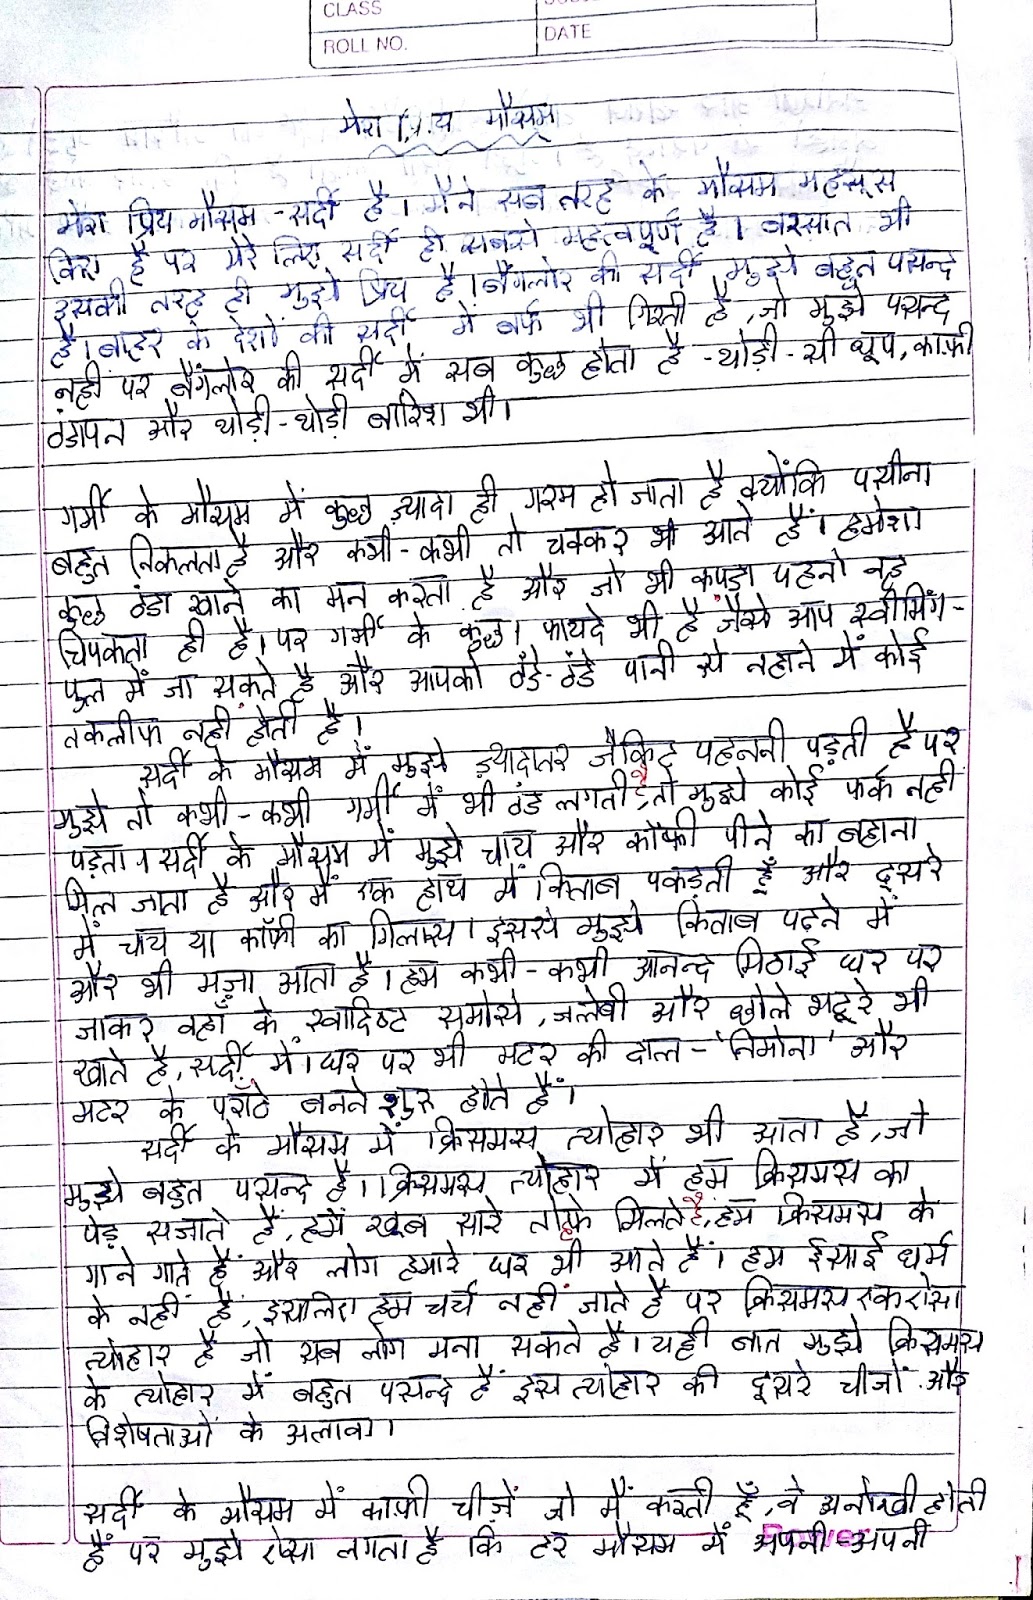 CLASS
ROLL NO.
DATE
मेरा प्रिय मौसम
मेरा प्रिय मौसम - सर्दी है। मैंने सब तरह के मौसम महसूस
किए है पर मेरे लिए सर्दी ही सबसे महत्वपूर्ण है। बरसात भी
इसकी तरह ही मुझे प्रिय है। बैंगलोर की सर्दी मुझे बहुत पसन्द
है। बाहर के देशों की सर्दी में बर्फ भी गिरती है, जो मुझे पसन्द
नही पर बैंगलोर की सर्दी में सब कुछ होता है - थोड़ी - सी धूप, काफ़ी
ठंडापन और थोड़ी - थोड़ी बारिश भी।
गर्मी के मौसम में कुछ ज़्यादा ही गरम हो जाता है क्योंकि पसीना
बहुत निकलता है और कभी - कभी तो चक्कर भी आते हैं। हमेशा
कुछ ठंडा खाने का मन करता है और जो भी कपड़ा पहनो वह
चिपकता ही है। पर गर्मी के कुछ फायदे भी है जैसे आप स्वीमिंग -
पुल में जा सकते है और आपको ठंडे - ठंडे पानी से नहाने में कोई
तकलीफ नही होती है।
सर्दी के मौसम में मुझे ज़्यादातर जैकिट पहननी पड़ती है पर
मुझे तो कभी - कभी गर्मी में भी ठंड लगती है, तो मुझे कोई फर्क नही
पड़ता। सर्दी के मौसम में मुझे चाय और कॉफी पीने का बहाना
मिल जाता है और मैं एक हाथ में किताब पकड़ती हूँ और दूसरे
में चाय या कॉफी का गिलास। इससे मुझे किताब पढ़ने में
और भी मज़ा आता है। हम कभी - कभी आनन्द मिठाई घर पर
जाकर वहाँ के स्वादिष्ट समोसे, जलेबी और छोले भटूरे भी
खाते है, सर्दी में। घर पर भी मटर की दाल - 'निमोना' और
मटर के पराँठे बनने शुरू होते हैं।
सर्दी के मौसम में क्रिसमस त्योहार भी आता है, जो
मुझे बहुत पसन्द है। क्रिसमस त्योहार में हम क्रिसमस का
पेड़ सजाते हैं, हमें खूब सारे तोह्फे मिलते है, हम क्रिसमस के
गाने गाते हैं और लोग हमारे घर भी आते हैं। हम ईसाई धर्म
के नहीं हैं, इसलिए हम चर्च नहीं जाते है पर क्रिसमस एक ऐसा
त्योहार है जो सब लोग मना सकते है। यही बात मुझे क्रिसमस
के त्योहार में बहुत पसन्द है इस त्योहार की दूसरे चीजों और
विशेषताओं के अलावा।
सर्दी के मौसम में काफ़ी चीज़ें जो मैं करती हूँ, वे अनोखी होती
हैं पर मुझे ऐसा लगता है कि हर मौसम में अपनी - अपनी